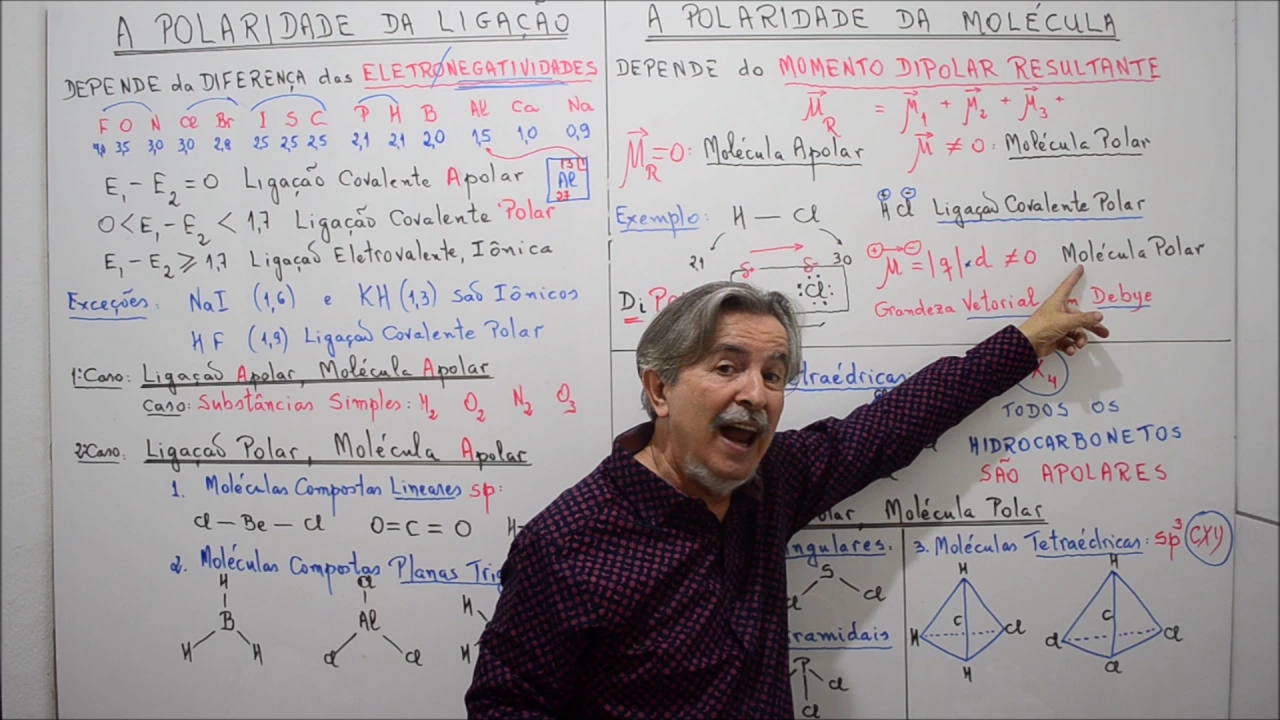 A POLARIDADE DA LIGAÇÃO
DEPENDE da DIFERENÇA das ELETRONEGATIVIDADES
F O N Cl Br I S C P H B Al Ca Na
4,0 3,5 3,0 3,0 2,8 2,5 2,5 2,5 2,1 2,1 2,0 1,5 1,0 0,9
E₁ - E₂ = 0 Ligação Covalente Apolar
13
Al
27
0 < E₁ - E₂ < 1,7 Ligação Covalente Polar
E₁ - E₂ ⩾ 1,7 Ligação Eletrovalente, Iônica
Exceções: NaI (1,6) e KH (1,3) são Iônicos
HF (1,9) Ligação Covalente Polar
1º Caso: Ligação Apolar, Molécula Apolar
Caso: Substâncias Simples: H₂ O₂ N₂ O₃
2º Caso: Ligação Polar, Molécula Apolar
1. Moléculas Compostas Lineares sp:
Cl - Be - Cl O = C = O H
2. Moléculas Compostas Planas Trig
H
B
H H
Cl
Al
Cl Cl
H
H
A POLARIDADE DA MOLÉCULA
DEPENDE do MOMENTO DIPOLAR RESULTANTE
μ⃗R = μ⃗₁ + μ⃗₂ + μ⃗₃ +
μ⃗R = 0: Molécula Apolar μ⃗ ≠ 0: Molécula Polar
Exemplo: H — Cl
⊕ ⊖
H Cl Ligação Covalente Polar
2,1 3,0
δ+ δ-
⊕ ⊖
μ⃗ = |q| . d ≠ 0 Molécula Polar
DiPo Cl
Grandeza Vetorial Debye
traédricas X₄
TODOS OS
HIDROCARBONETOS
SÃO APOLARES
olar, Molécula Polar
ngulares.
S
Cl
ramidais
P
Cl
Cl
3. Moléculas Tetraédricas: sp³ CXY
H
C
H Cl
H
H
C
Cl Cl
Cl